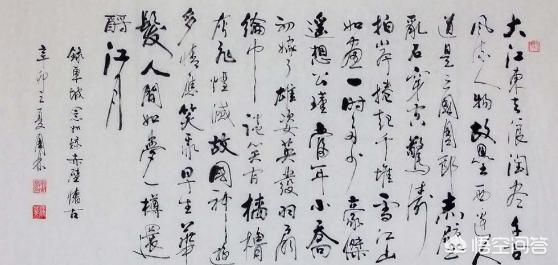 大江東去浪淘盡千古
風流人物故壘西邊人
道是三國周郎赤壁
亂石穿空驚濤
拍岸捲起千堆雪江山
如畫一時多少豪傑
遙想公瑾當年小喬
初嫁了雄姿英發羽扇
綸巾談笑間檣櫓
灰飛煙滅故國神遊
多情應笑我早生華
髮人間如夢一樽還
酹江月
錄東坡念奴嬌赤壁懷古
辛卯之夏
悟空问答